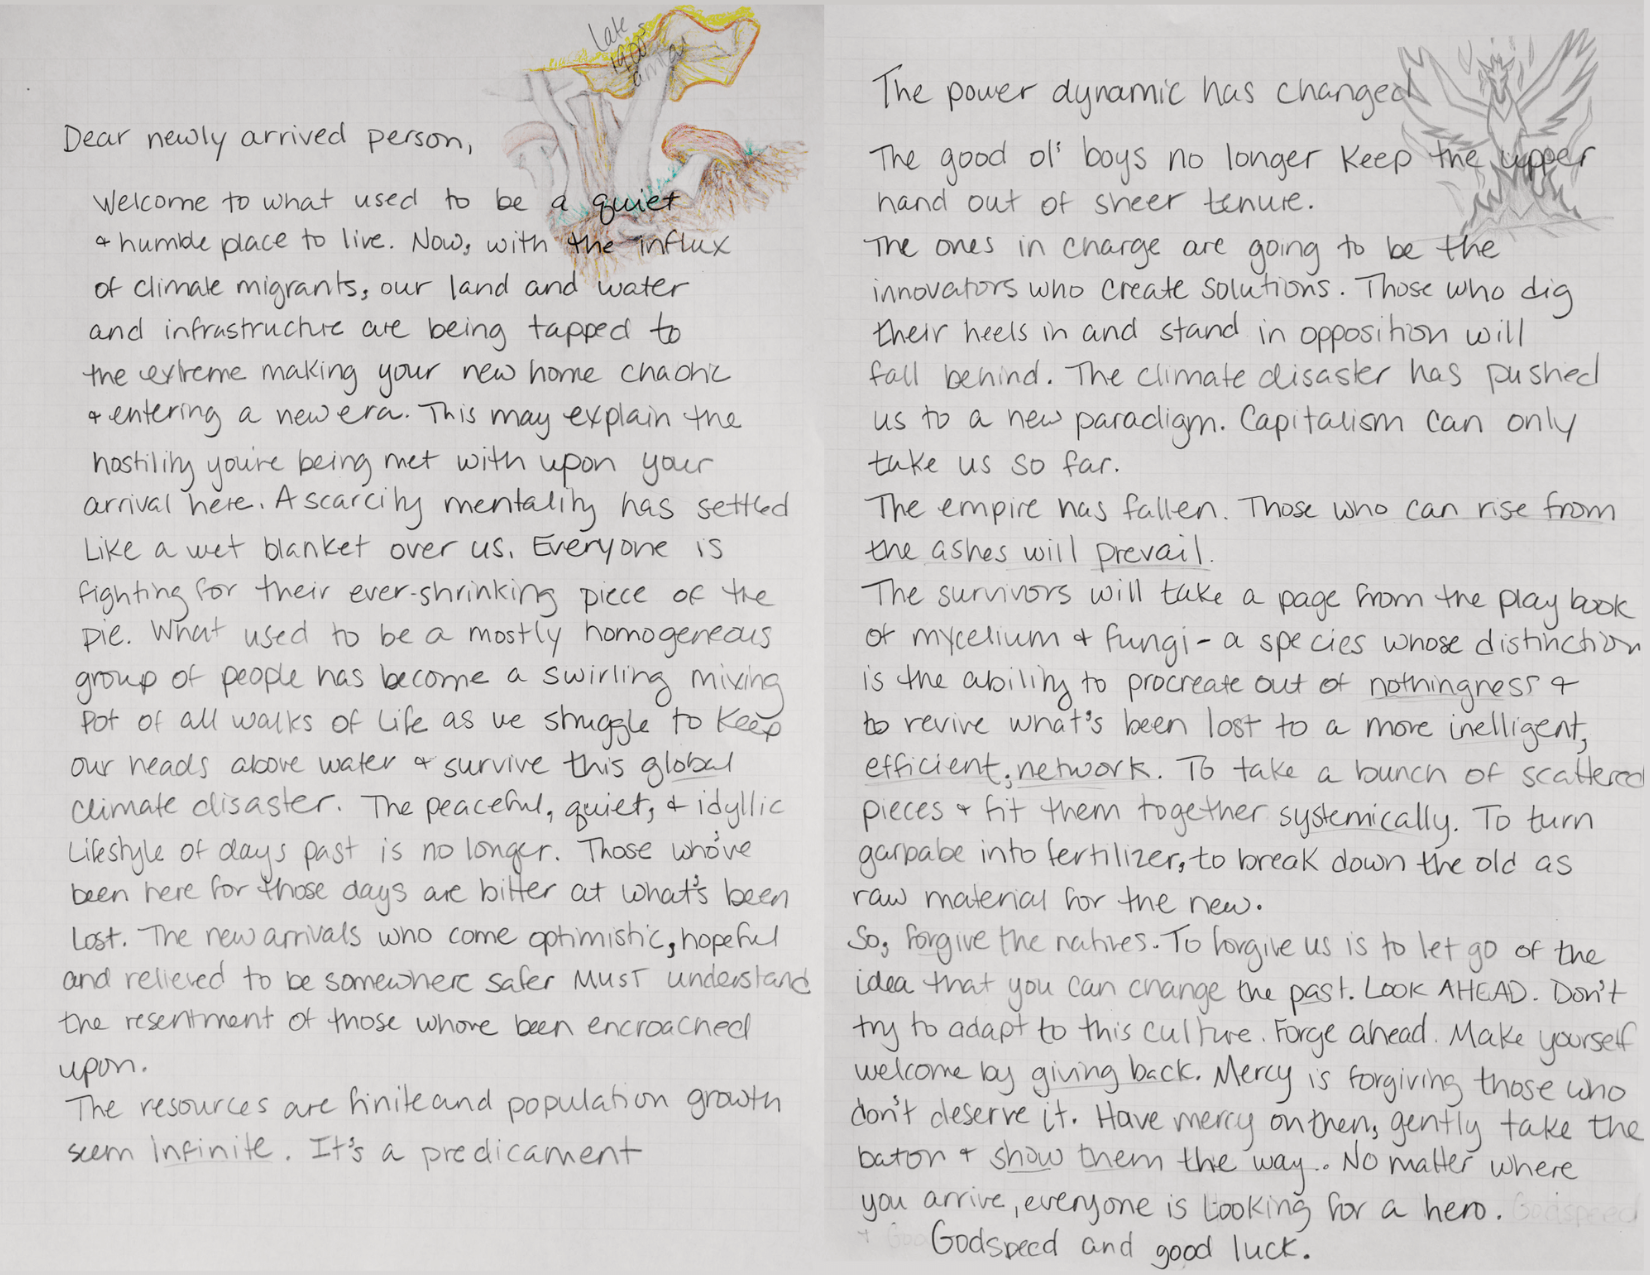 late
1900s
Dear newly arrived person,
Welcome to what used to be a quiet
& humble place to live. Now, with the influx
of climate migrants, our land and water
and infrastructure are being tapped to
the extreme making your new home chaotic
& entering a new era. This may explain the
hostility you're being met with upon your
arrival here. A scarcity mentality has settled
like a wet blanket over us. Everyone is
fighting for their ever-shrinking piece of the
pie. What used to be a mostly homogeneous
group of people has become a swirling mixing
pot of all walks of life as we struggle to keep
our heads above water & survive this global
climate disaster. The peaceful, quiet, & idyllic
lifestyle of days past is no longer. Those who've
been here for those days are bitter at what's been
lost. The new arrivals who come optimistic, hopeful
and relieved to be somewhere safer MUST understand
the resentment of those whove been encroached
upon.
The resources are finite and population growth
seem infinite. It's a predicament
The power dynamic has changed
The good ol' boys no longer keep the upper
hand out of sheer tenure.
The ones in charge are going to be the
innovators who create solutions. Those who dig
their heels in and stand in opposition will
fall behind. The climate disaster has pushed
us to a new paradigm. Capitalism can only
take us so far.
The empire has fallen. Those who can rise from
the ashes will prevail.
The survivors will take a page from the play book
of mycelium & fungi - a species whose distinction
is the ability to procreate out of nothingness &
to revive what's been lost to a more inelligent,
efficient, network. To take a bunch of scattered
pieces & fit them together systemically. To turn
garbabe into fertilizer, to break down the old as
raw material for the new.
So, forgive the natives. To forgive us is to let go of the
idea that you can change the past. LOOK AHEAD. Don't
try to adapt to this culture. Forge ahead. Make yourself
welcome by giving back. Mercy is forgiving those who
don't deserve it. Have mercy on then, gently take the
baton & show them the way.. No matter where
you arrive, everyone is looking for a hero. Godspeed
& Goo
Godspeed and good luck.